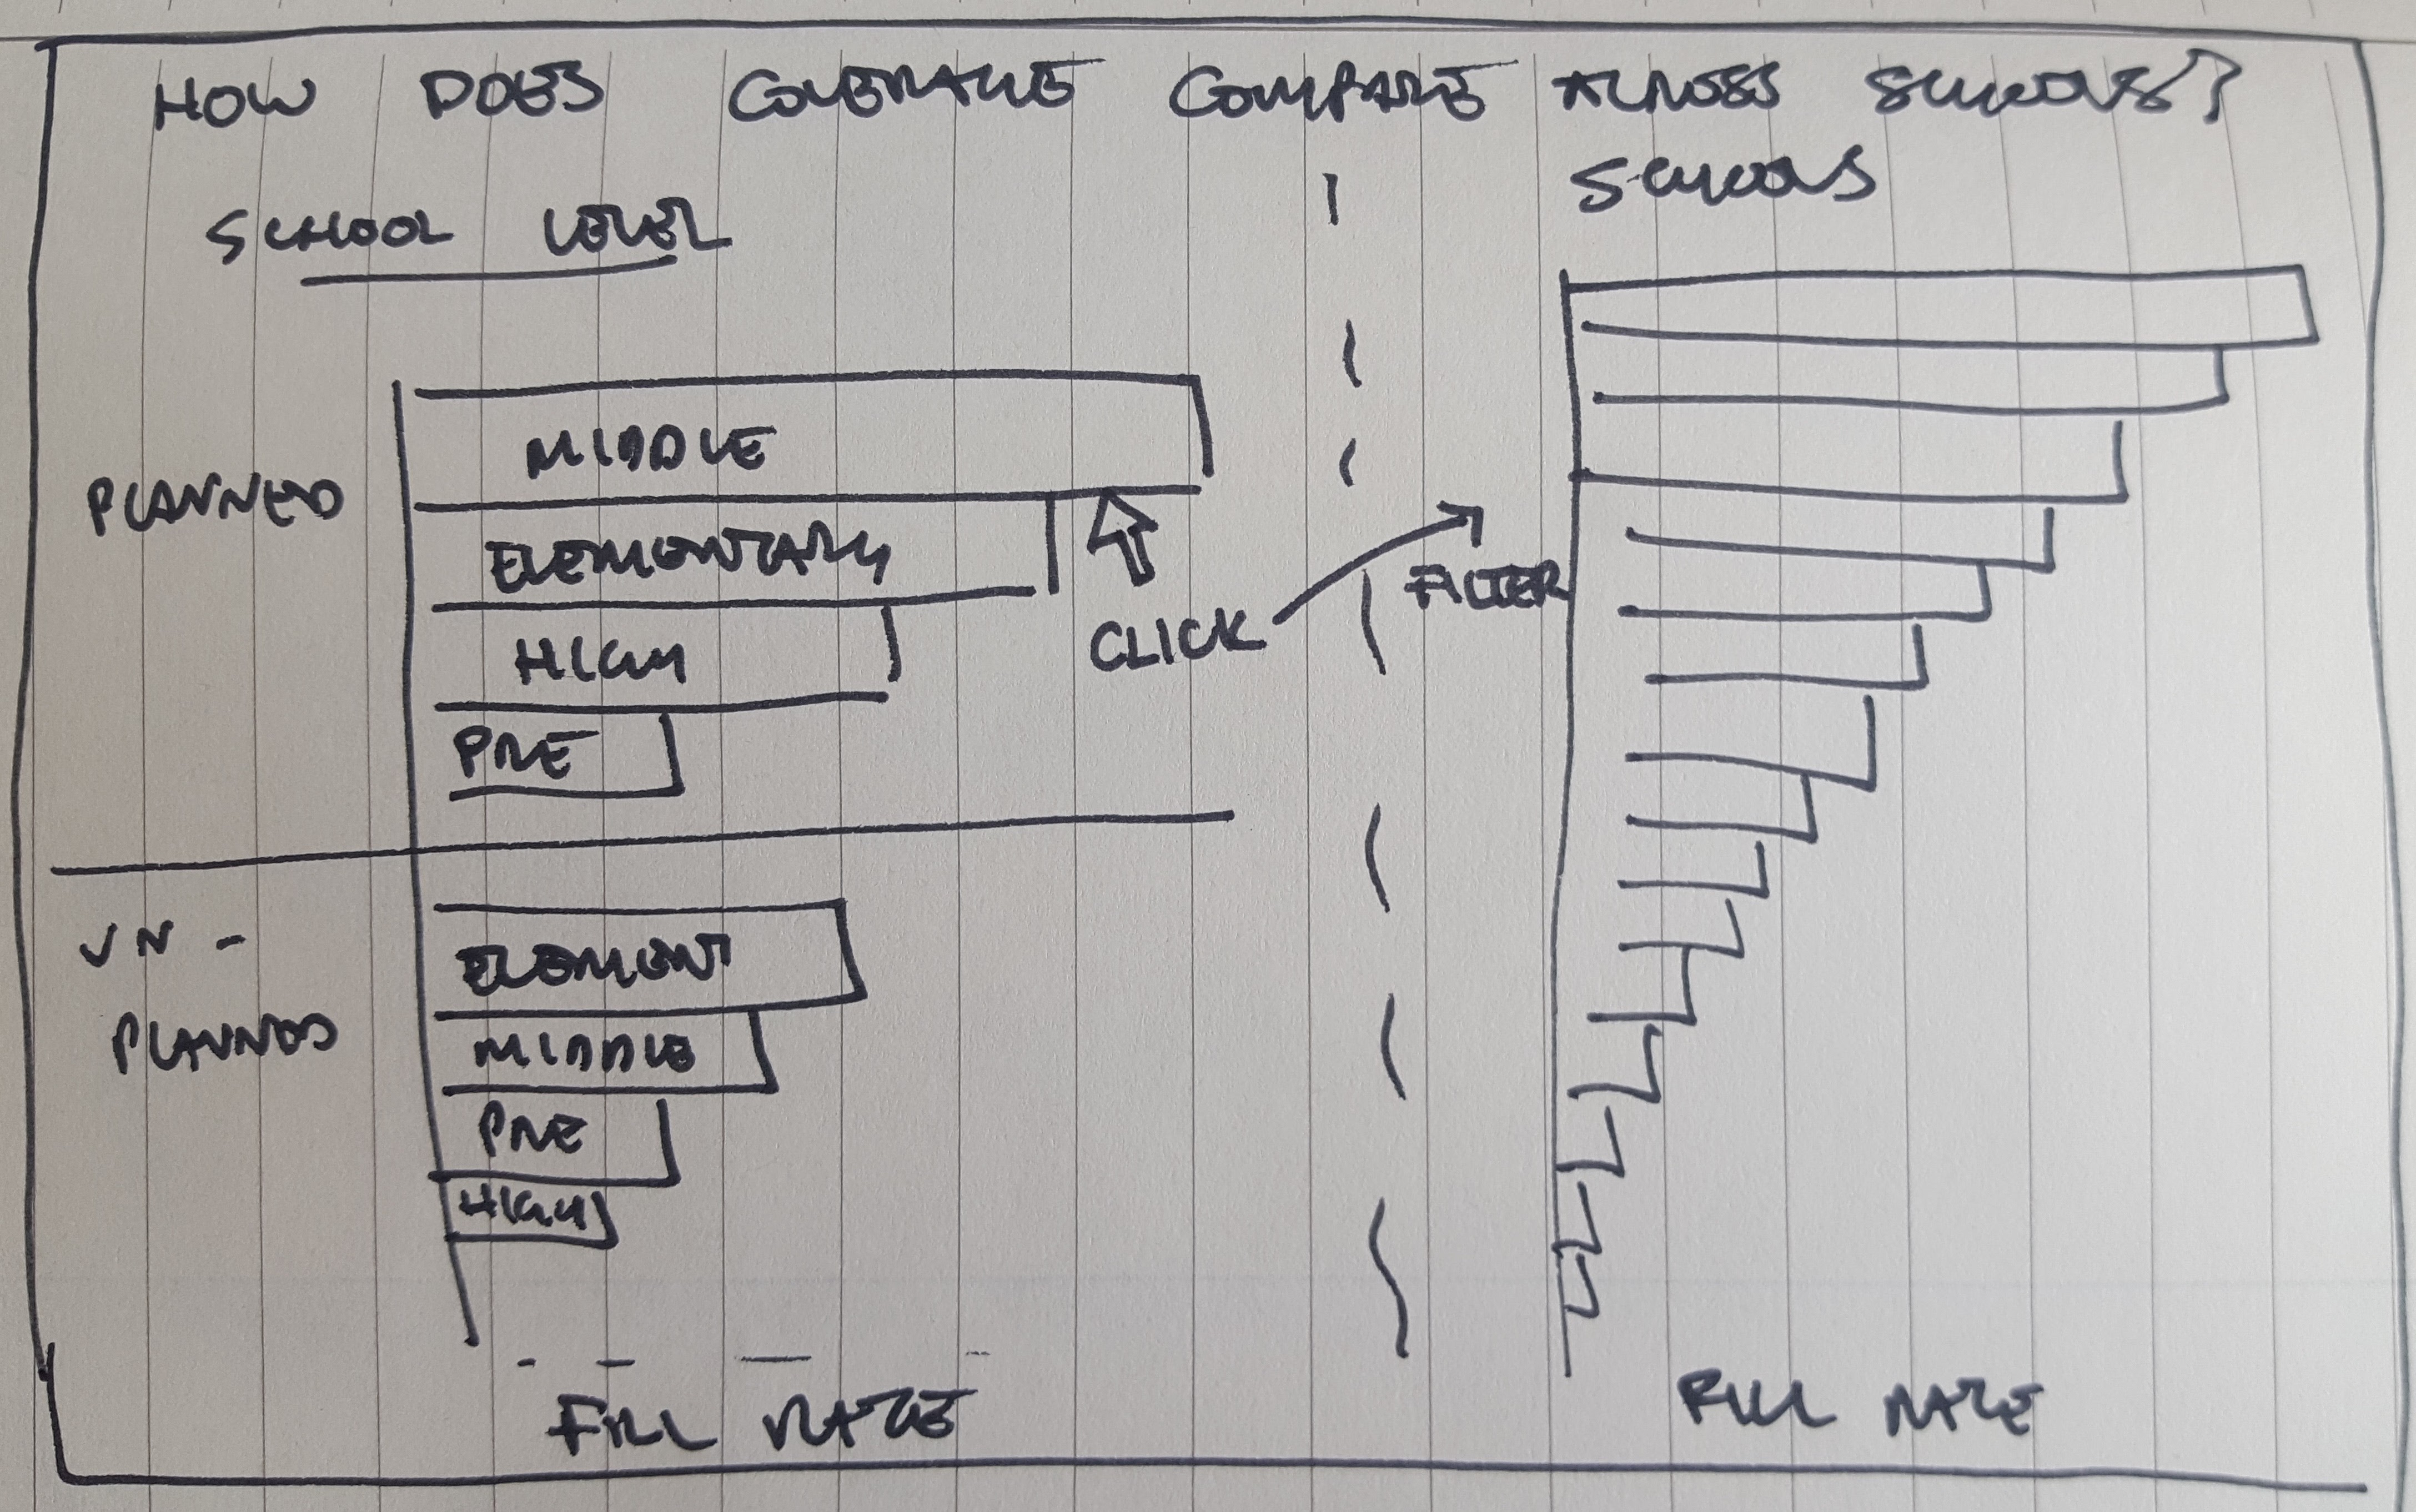 HOW DOES COVERAGE COMPARE ACROSS SCHOOLS?
SCHOOL LEVEL
PLANNED
MIDDLE
ELEMENTARY
HIGH
PRE
CLICK
FILTER
UN-
PLANNED
ELEMENT
MIDDLE
PRE
HIGH
FILL RATE
SCHOOLS
FILL RATE